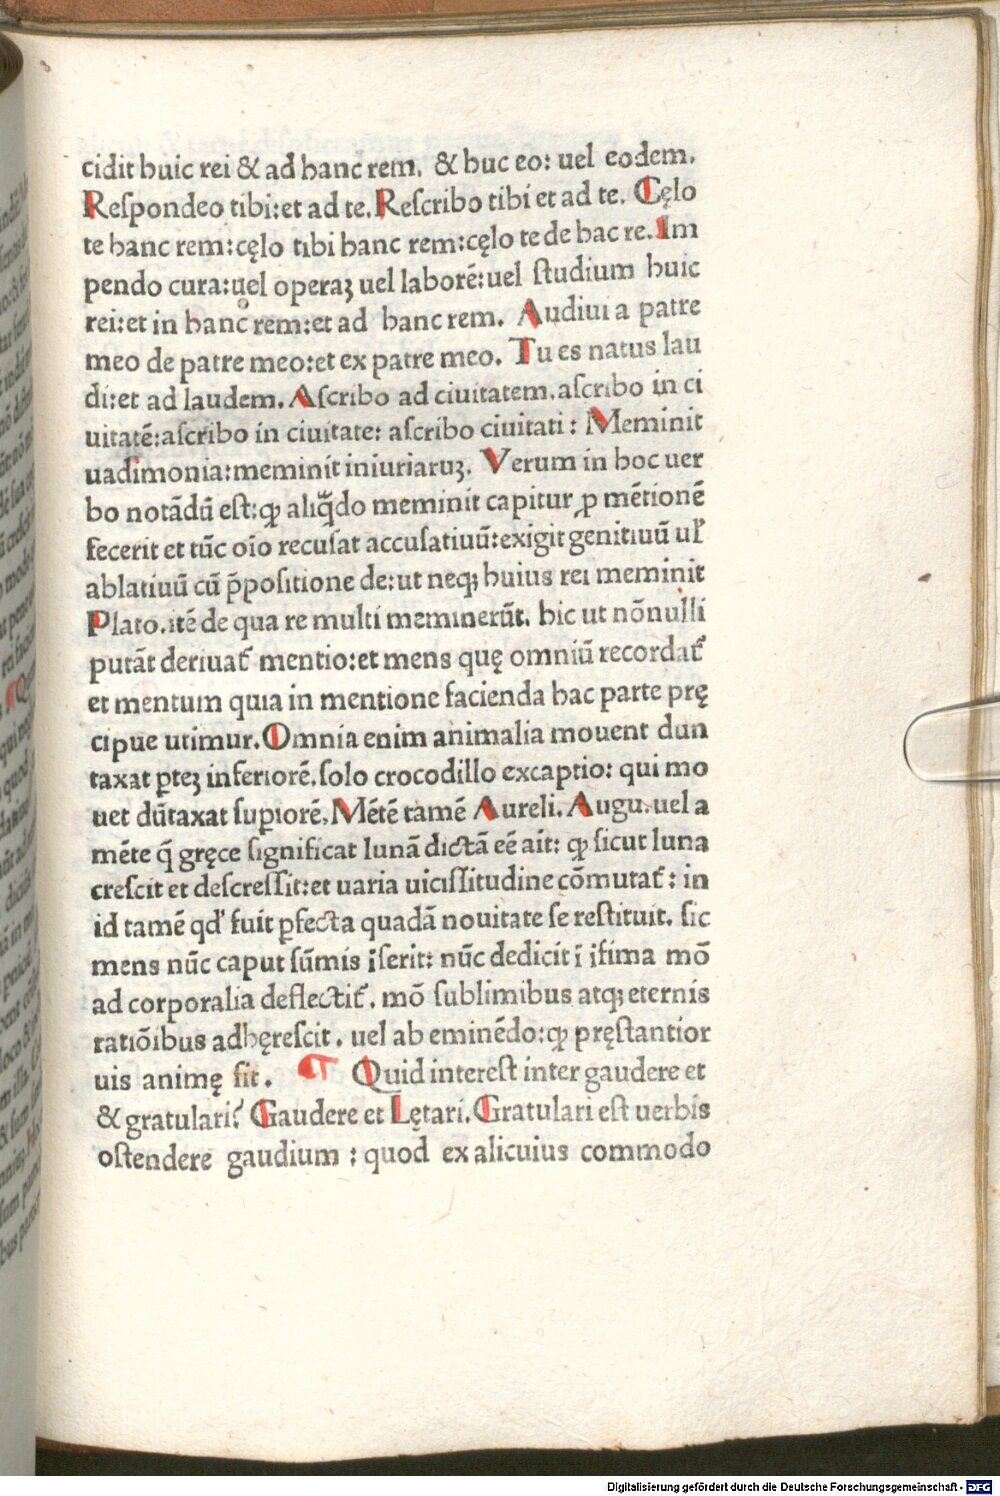 cidit huic rei & ad hanc rem. & huc eo: uel eodem.
Respondeo tibi:et ad te. Rescribo tibi et ad te. Cęlo
te hanc rem:cęlo tibi hanc rem:cęlo te de hac re. Im
pendo cura:uel operaꝫ uel laborē:uel studium huic
rei:et in hanc rem:et ad hanc rem. Audiui a patre
meo de patre meo:et ex patre meo. Tu es natus lau
di:et ad laudem. Ascribo ad ciuitatem.ascribo in ci
uitatē:ascribo in ciuitate: ascribo ciuitati: Meminit
uadimonia:meminit iniuriaruꝫ. Verum in hoc uer
bo notādū est:ꝙ aliq̄do meminit capitur ꝓ mētionē
fecerit et tūc oīo recusat accusatiuū:exigit genitiuū ul̓
ablatiuū cū p̄positione de:ut neqꝫ huius rei meminit
Plato.itē de qua re multi meminerūt. hic ut nōnulli
putāt deriuat᷑ mentio:et mens quę omniū recordat᷑
et mentum quia in mentione facienda hac parte prę
cipue utimur. Omnia enim animalia mouent dun
taxat ꝑteꝫ inferiorē.solo crocodillo excaptio: qui mo
uet dūtaxat supiorē. Mētē tamē Aureli. Augu.uel a
mēte q̄ gręce significat lunā dictā eē ait: ꝙ sicut luna
crescit et descressit:et uaria uicissitudine cōmutat᷑: in
id tamē qd̓ fuit ꝑfecta quadā nouitate se restituit. sic
mens nūc caput sūmis īserit: nūc dedicit ī ifima mō
ad corporalia deflectit᷑. mō sublimibus atqꝫ eternis
ratiōibus adhęrescit. uel ab eminēdo:ꝙ pręstantior
uis animę sit. ¶ Quid interest inter gaudere et
& gratulari? Gaudere et Lętari. Gratulari est uerbis
ostendere gaudium : quod ex alicuius commodo
Digitalisierung gefördert durch die Deutsche Forschungsgemeinschaft - DFG